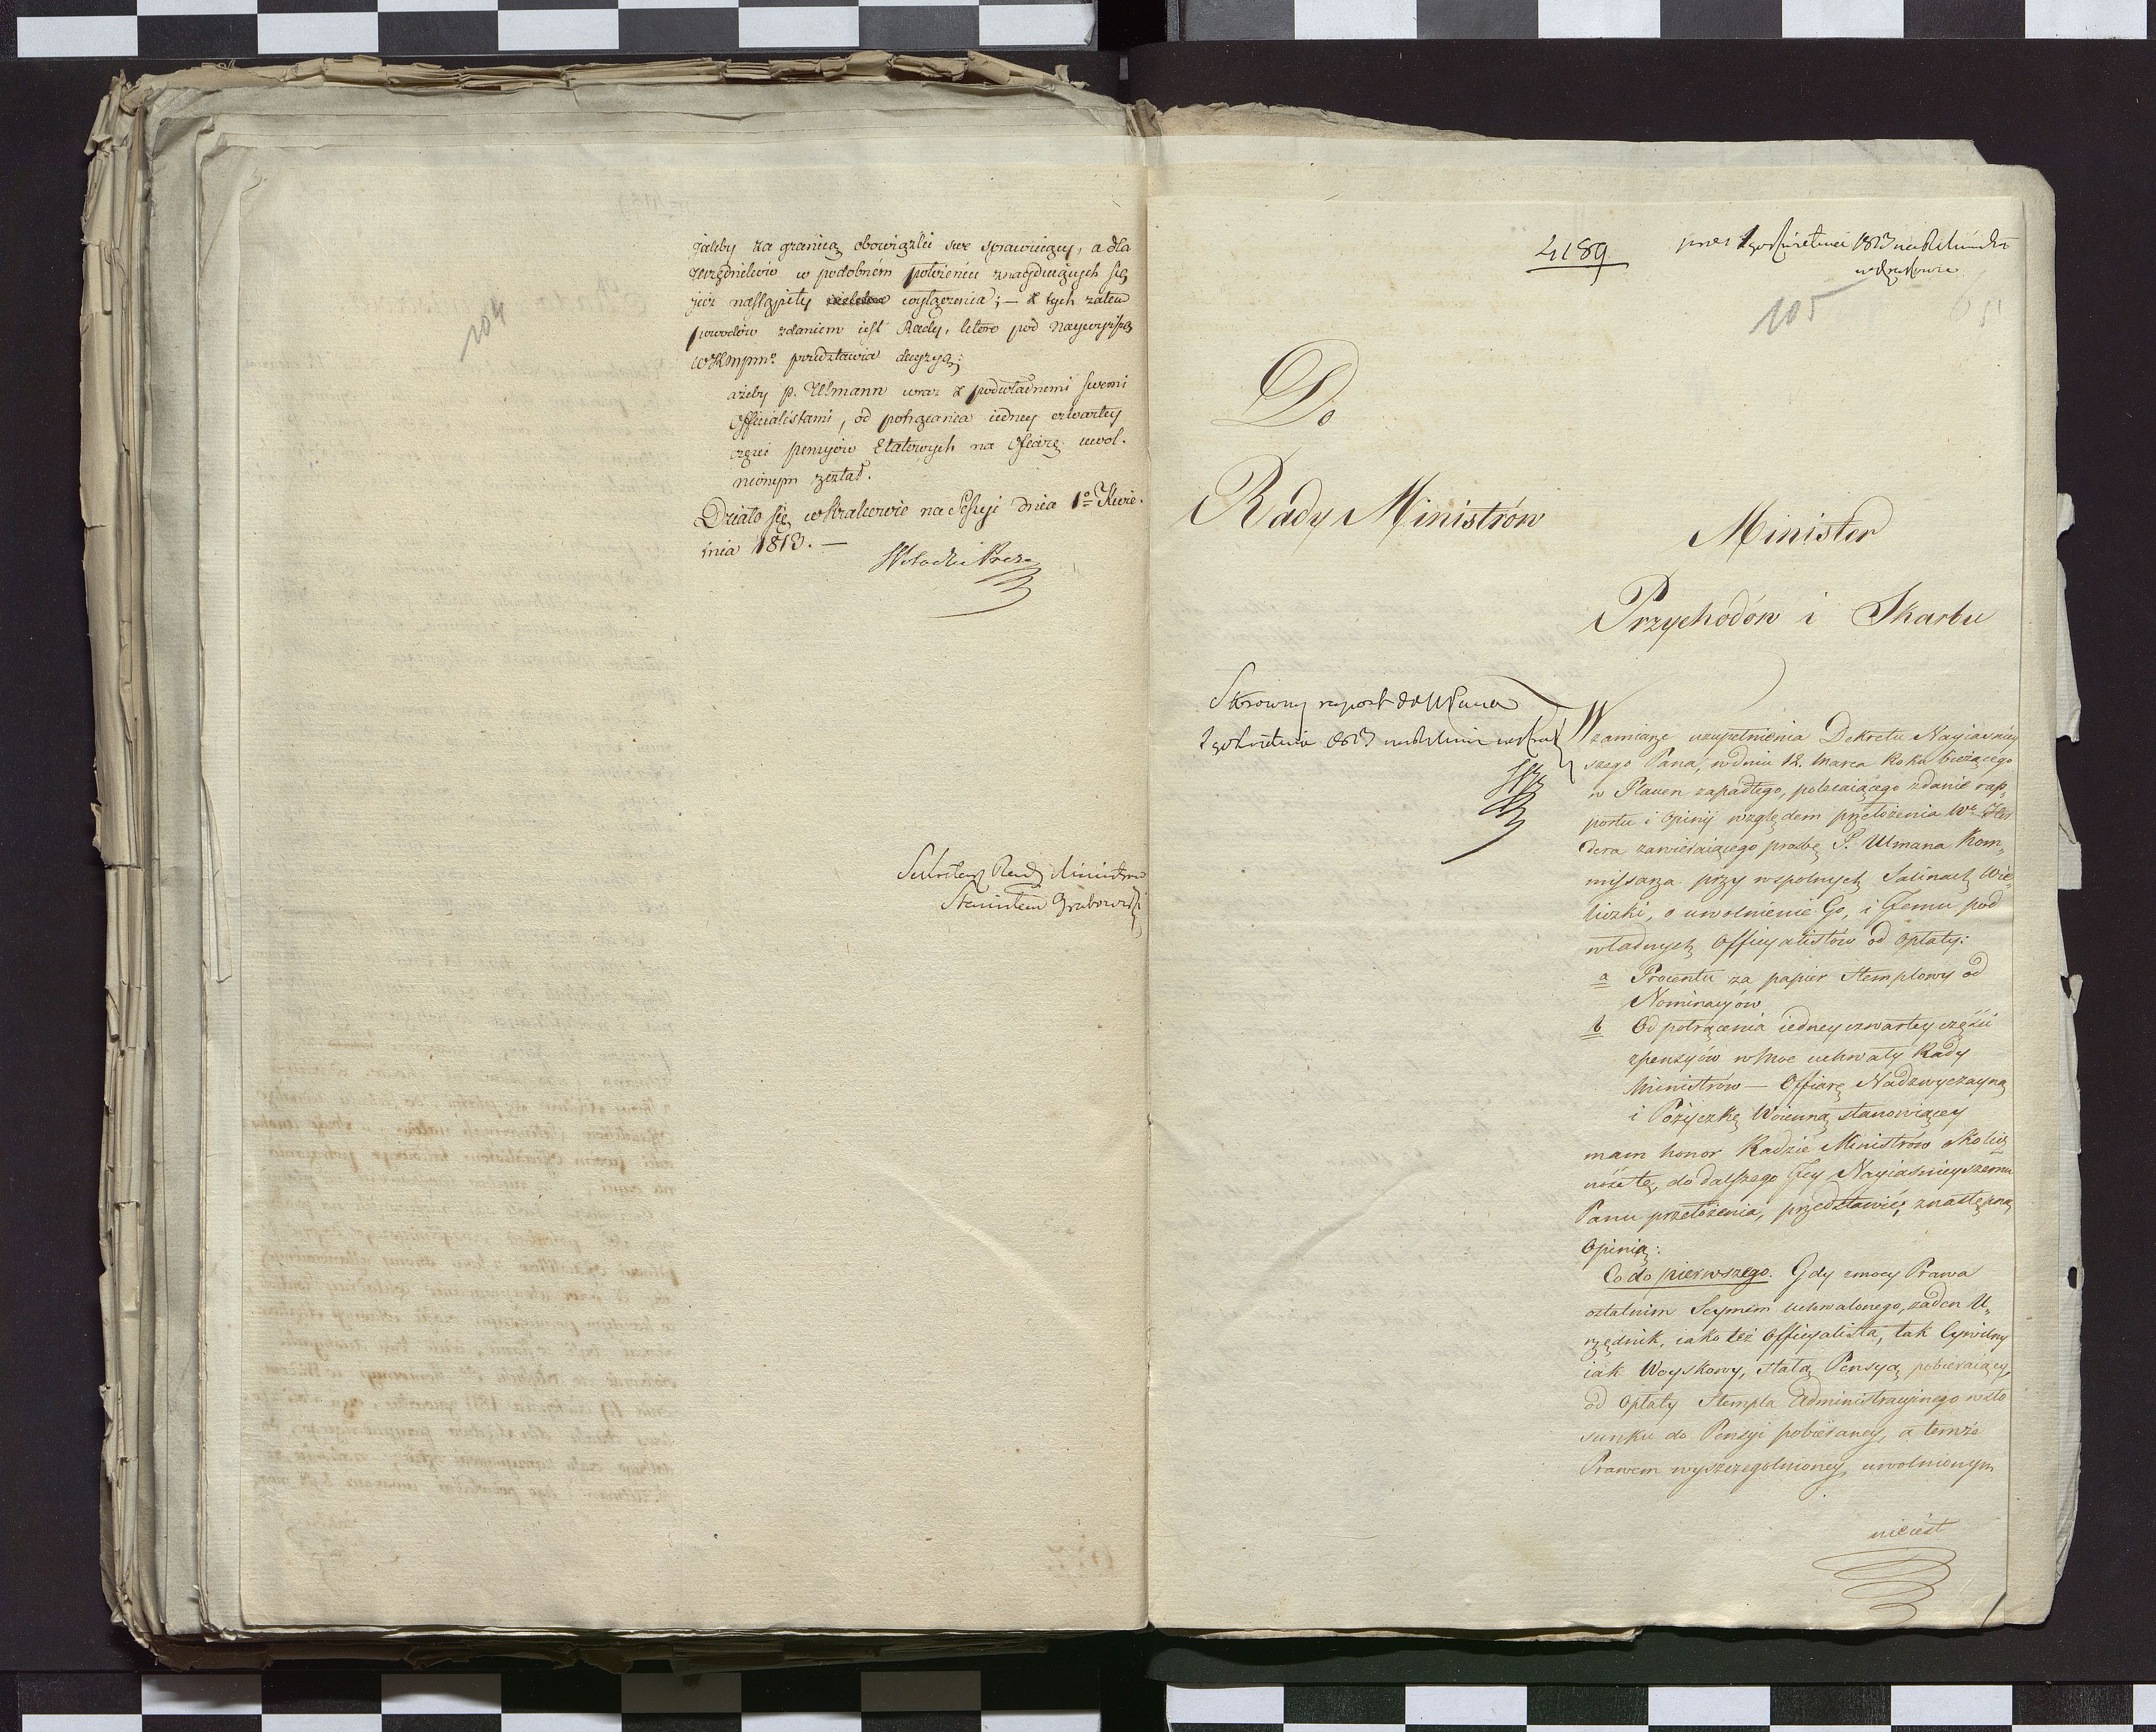 104
jakby za granicą obowiązki swe sprawuiący, a dla
Urzędników w podobném położeniu znayduiących się
już nastąpiły wyłączenia; — z tych zatem
powodów zdaniem iest Rady, które pod Naywyższą
WKMpmo. przedstawia decyzyą;
ażeby p. Ulmann wraz z podwładnemi swemi
Officialistami, od potrącania iedney czwartey
części pensyiów Etatowych na Ofiarę uwol-
nionym został.
Działo się w Krakowie na Sessyi dnia 1o Kwie-
tnia 1813. —
Sekretarz Rady Ministrów
Stanisław Grabowski
4189
1go Kwietnia 1813
w Krakowie
105
Do
Rady Ministrów
Minister
Przychodów i Skarbu
Stosowny raport do NPana
1 go Kwietnia 1813
W zamiarze uzupełnienia Dekretu Nayiaśniey
szego Pana, w dniu 12. Marca Roku bieżącego
w Plauen zapadłego, polecaiącego zdanie rap„
portu i Opinij względem przełożenia
dera zawieraiącego prośbę P. Ulmana Kom„
missarza przy wspolnych Salinach Wie„
liczki, o uwolnienie Go, i Jemu pod
władnych Officyalistów od Opłaty:
a Procentu za papier Stemplowy od
Nominacyów
b Od potrącenia iedney czwartey części
z pensyów w Moc uchwały Rady
Ministrów — Offiarę Nadzwyczayną
i Pożyczkę Woienną stanowiącey
mam honor Radzie Ministrów okolicz
ność tę, do dalszego Jey Nayiaśnieyszemu
Panu przełożenia, przedstawić, z następną
Opinią:
Co do pierwszego. Gdy z mocy Prawa
ostatnim Seymem uchwalonego, żaden U„
rzędnik, iako też Officyalista, tak Cywilny
iak Woyskowy, stałą Pensyą pobieraiący,
od Opłaty Stempla Administracyinego w sto
sunku do Pensyi pobieraney, a temże
Prawem wyszczegolnioney, uwolnionym
nieiest